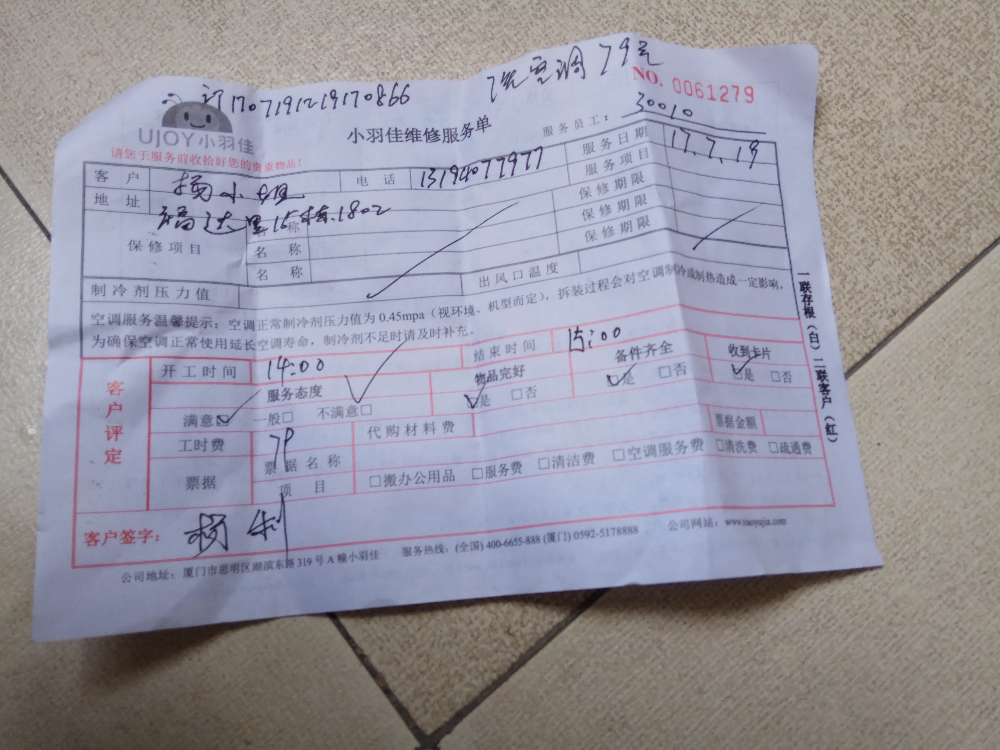 订1707191219170866 洗空调79元
NO. 0061279
UJOY小羽佳
小羽佳维修服务单
服务员工: 30010
请您于服务前收拾好您的贵重物品!
客户 杨小姐 电话 13194077977 服务日期 17.7.19
地址 福达里15栋1802 服务项目
保修项目 名称 保修期限
名称 保修期限
名称 保修期限
制冷剂压力值 出风口温度
空调服务温馨提示:空调正常制冷剂压力值为0.45mpa(视环境、机型而定),拆装过程会对空调制冷或制热造成一定影响,
为确保空调正常使用延长空调寿命,制冷剂不足时请及时补充。
客户评定
开工时间 14:00 结束时间 15:00
服务态度 物品完好 备件齐全 收到卡片
满意☑ 一般□ 不满意□ ☑是 □否 ☑是 □否 ☑是 □否
工时费 79 代购材料费
票据 票据名称 票据金额
项目 □搬办公用品 □服务费 □清洁费 □空调服务费 □清洗费 □疏通费
客户签字: 杨利
公司地址:厦门市思明区湖滨东路319号A幢小羽佳 服务热线:(全国) 400-6655-888 (厦门) 0592-5178888 公司网站:www.xiaoyujia.com
一联存根(白)二联客户(红)